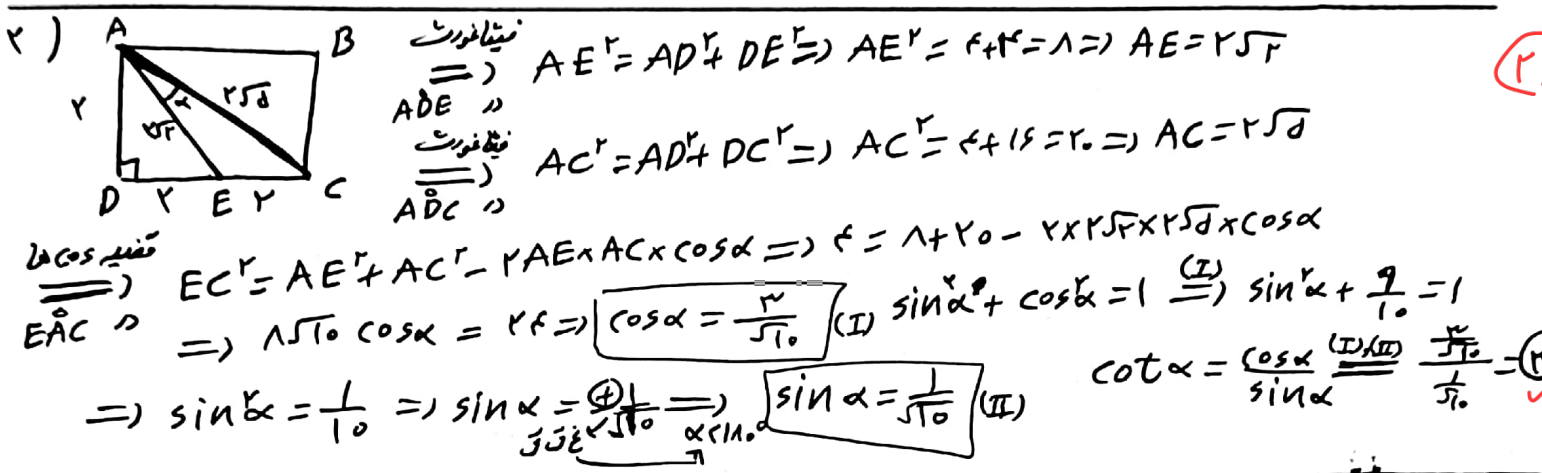 ۲)
A B
۲ ۲√۵ α
۲√۲
D ۲ E ۲ C
فیثاغورث در ADE => AE^۲ = AD^۲ + DE^۲ => AE^۲ = ۴+۴ = ۸ => AE = ۲√۲
۲
فیثاغورث در ADC => AC^۲ = AD^۲ + DC^۲ => AC^۲ = ۴+۱۶ = ۲۰ => AC = ۲√۵
قضیه cos ها در EAC => EC^۲ = AE^۲ + AC^۲ - ۲AE×AC×cosα => ۴ = ۸+۲۰ - ۲×۲√۲×۲√۵×cosα
=> ۸√۱۰ cosα = ۲۴ => cosα = ۳/√۱۰ (I) sin^۲α + cos^۲α = ۱ =(I)=> sin^۲α + ۹/۱۰ = ۱
=> sin^۲α = ۱/۱۰ => sinα = ۱/√۱۰ => α<۱۸۰° sinα = ۱/√۱۰ (II) cotα = cosα/sinα =(I),(II)= (۳/√۱۰)/(۱/√۱۰) = ۳
غ ق ق